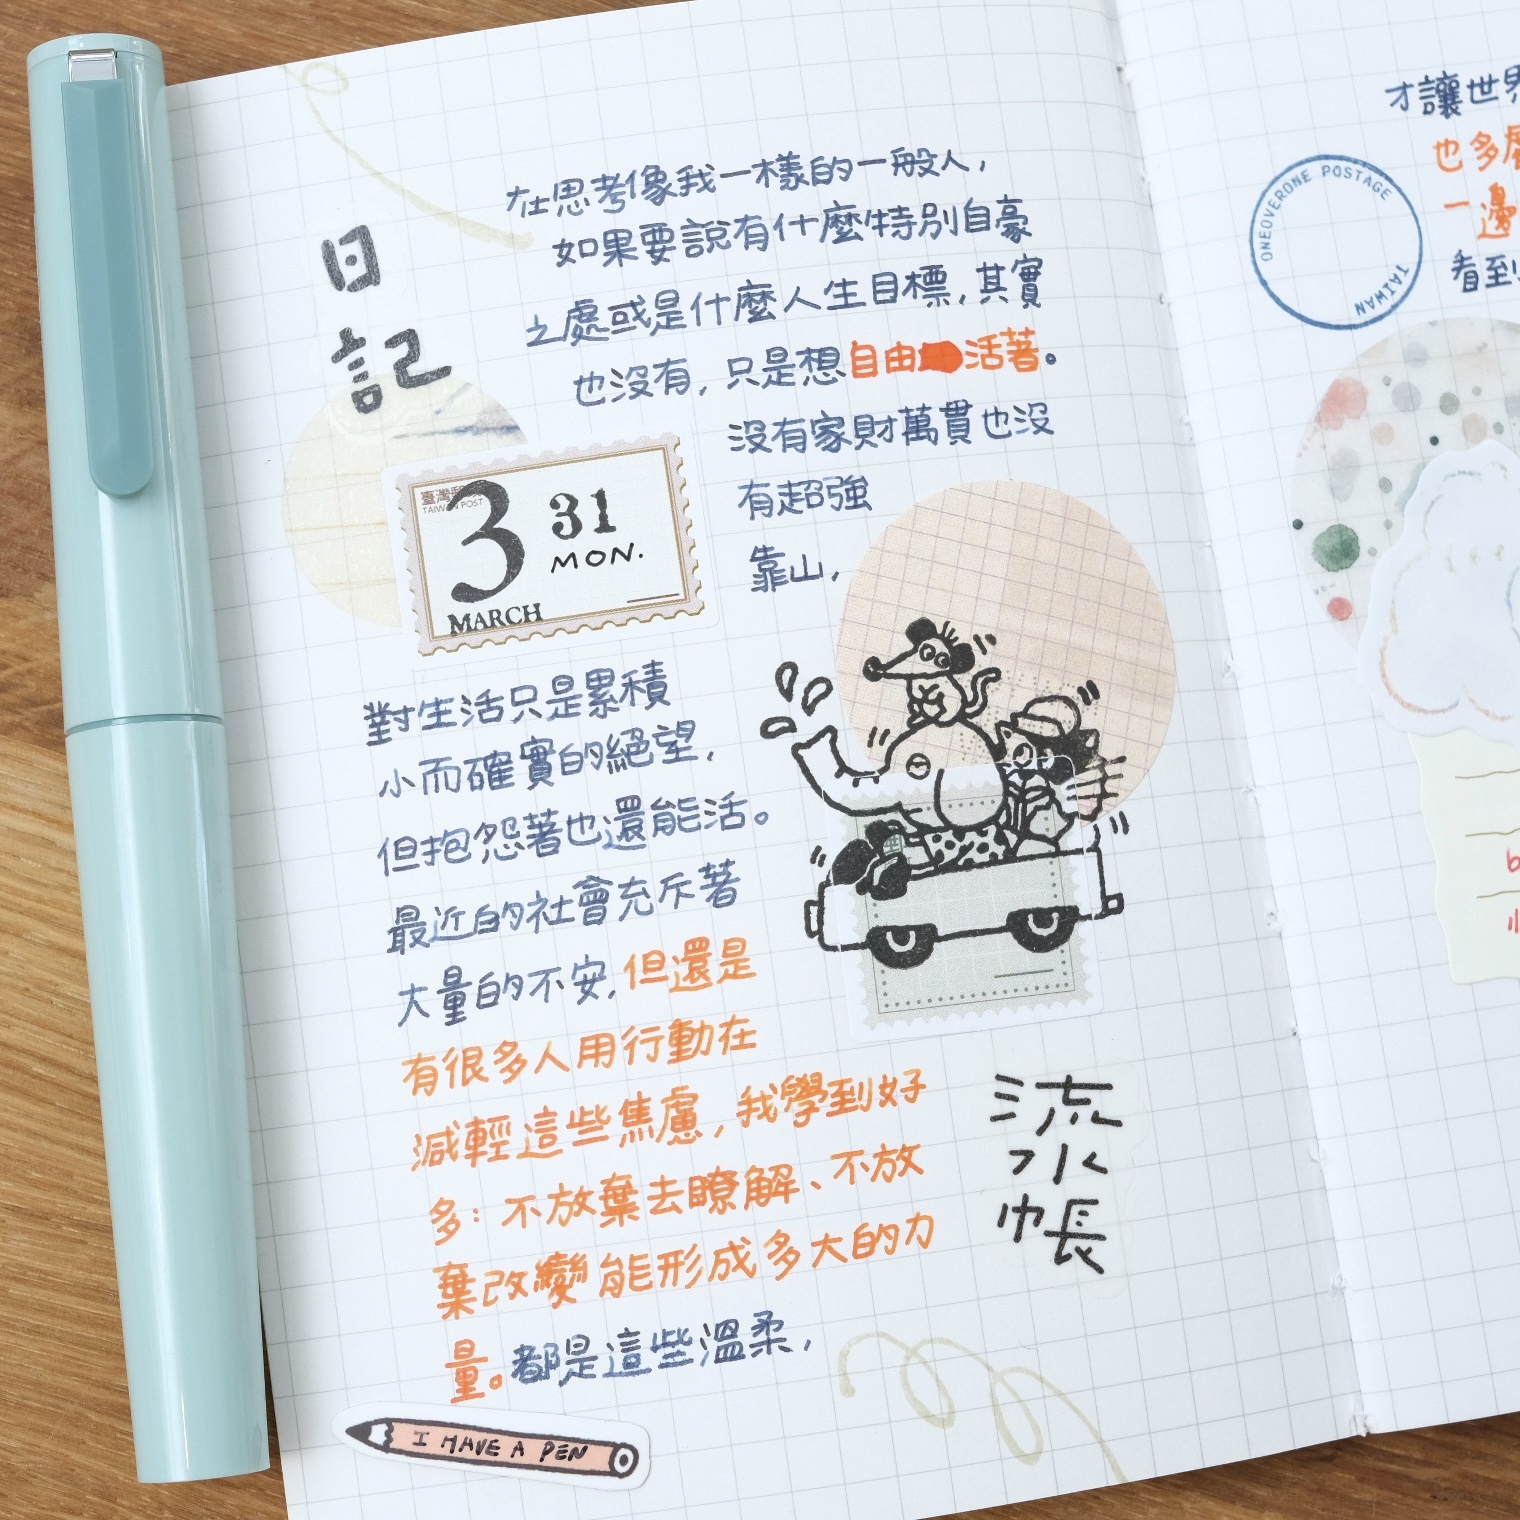 日記
在思考像我一樣的一般人，
如果要說有什麼特別自豪
之處或是什麼人生目標，其實
也沒有，只是想自由活著。
沒有家財萬貫也沒
有超強
靠山，
臺灣郵
TAIWAN POST
3 31
MON.
MARCH
對生活只是累積
小而確實的絕望，
但抱怨著也還能活。
最近的社會充斥著
大量的不安，但還是
有很多人用行動在
減輕這些焦慮，我學到好
多：不放棄去瞭解、不放
棄改變能形成多大的力
量。都是這些溫柔，
流水帳
I HAVE A PEN
才讓世界
也多
一邊
看到
ONEOVERONE POSTAGE
TAIWAN